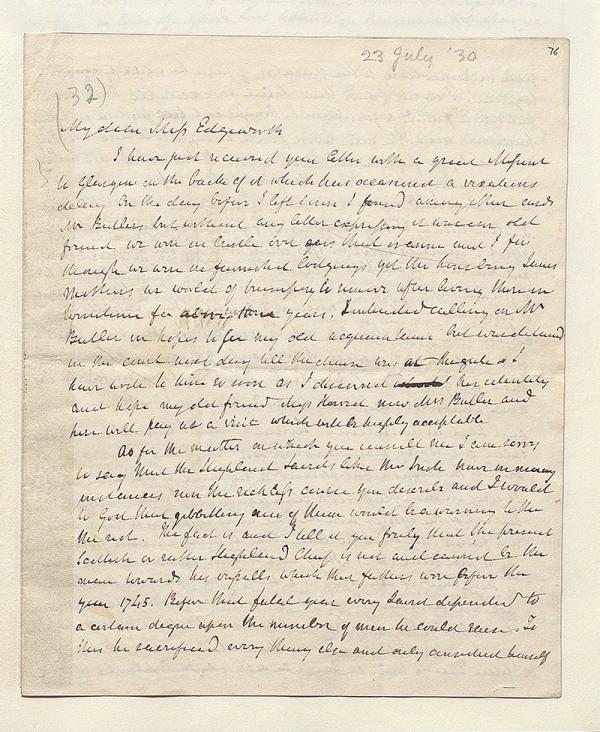 23 July '30
76
32)
My dear Miss Edgeworth
I have just received your letter with a great
to Glasgow on the back of it which has occasiond a vexatious
delay. On the day before I left town I found among other cards
Mr Butlers but without any letter expressing it was an old
friend we were in Castle and I
though we were in furnished lodgings yet the house being James
a world of to after living there in
sometime for years. I intended calling on Mr
Butler in hopes to my old acquaintance but was detaind
in the court next day till the chaise was at the gate. I
have wrote to him as soon as I discoverd her identity
and hope my old friend Miss Honora now Mrs Butler and
him will pay us a visit which will be highly acceptable
As for the matter on which you consult me I am sorry
to say that the Highland Lairds like the Irish have in many
instances run the reckless course you describe and I would
to God that gibbetting one of them would be a warning to the
the rest. The fact is and I tell it you freely that the present
Scottish or rather Highland Chief is not and cannot be the
same towards his vassals which their fathers were before the
year 1745. Before that fatal year every Laird depended to
a certain degree upon the number of men he could raise. To
this he sacrificed every thing else and only considerd himself